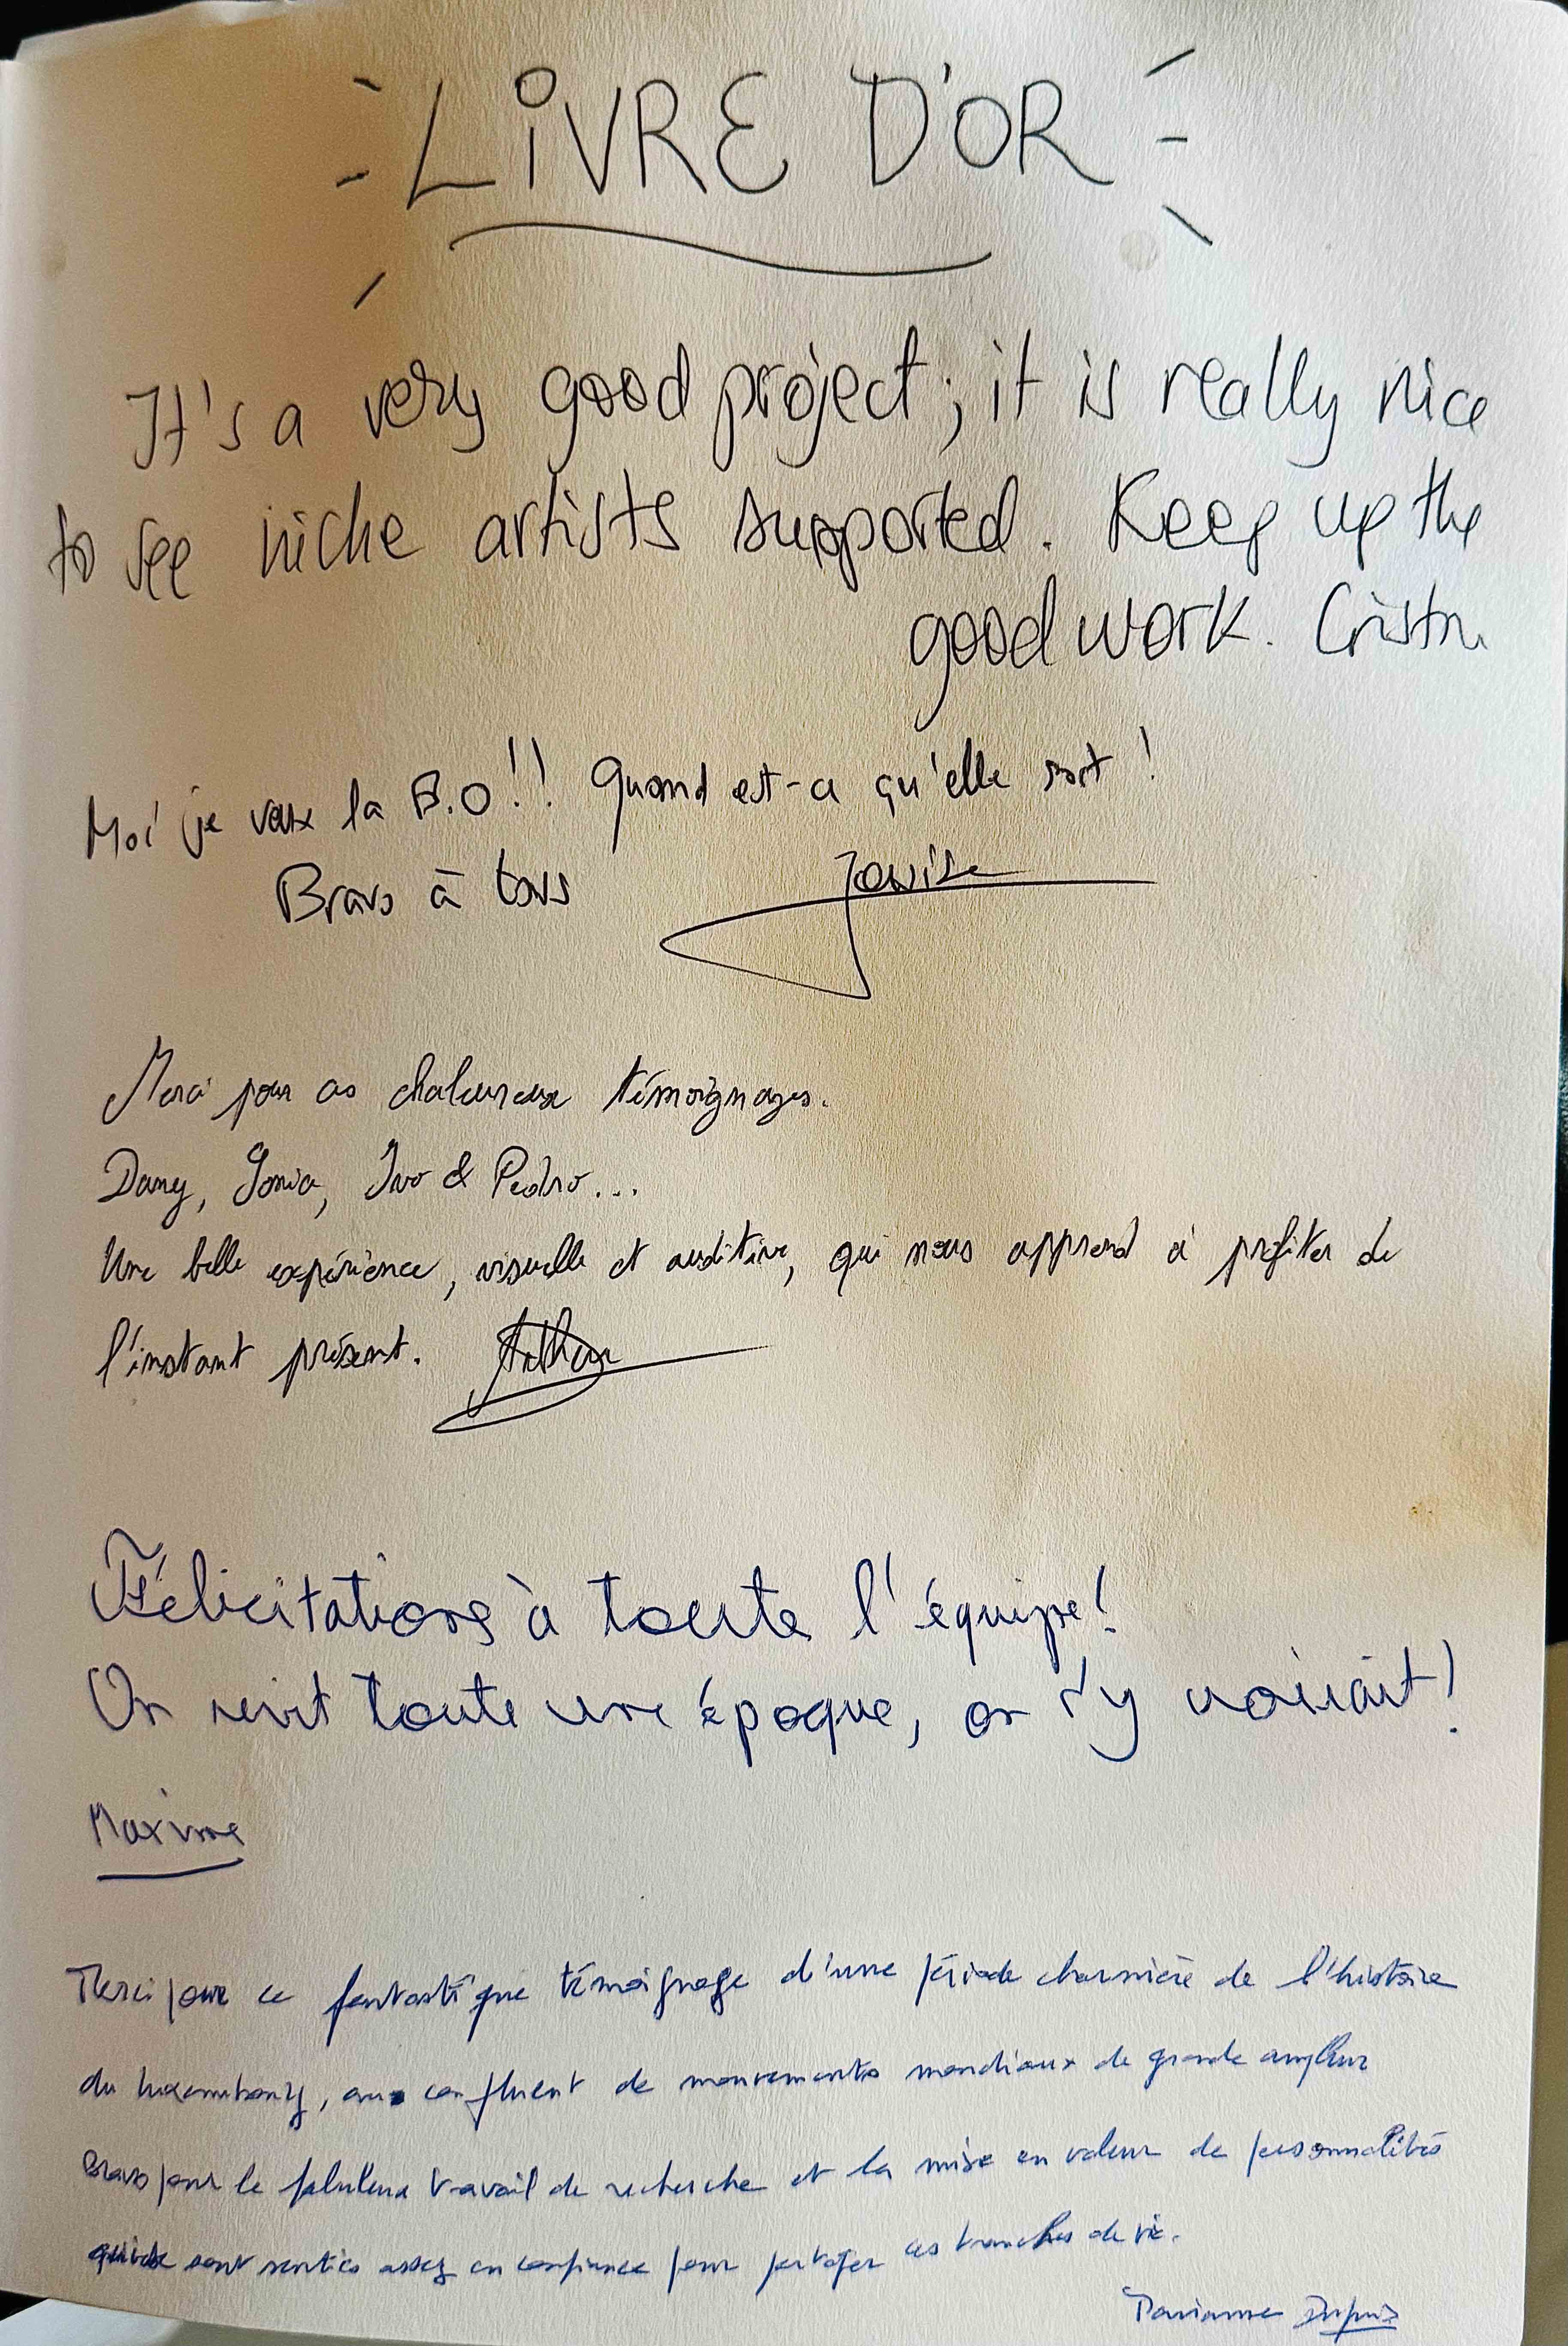 LIVRE D'OR
It's a very good project; it is really nice
to see niche artists supported. Keep up the
good work.
Moi je veux la B.O!! Quand est-ce qu'elle sort !
Bravo à tous
Merci pour ces chaleureux témoignages.
Dany, Sonia, Ivo & Pedro...
Une belle expérience, visuelle et auditive, qui nous apprend à profiter de
l'instant présent. Arthur
Félicitations à toute l'équipe!
On revit toute une époque, on s'y croirait!
Maxime
Merci pour ce fantastique témoignage d'une période charnière de l'histoire
du Luxembourg, au confluent de mouvements mondiaux de grande ampleur
Bravo pour le fabuleux travail de recherche et la mise en valeur de personnalités
qui se sont senties assez en confiance pour partager ces tranches de vie.
Marianne Dupuis